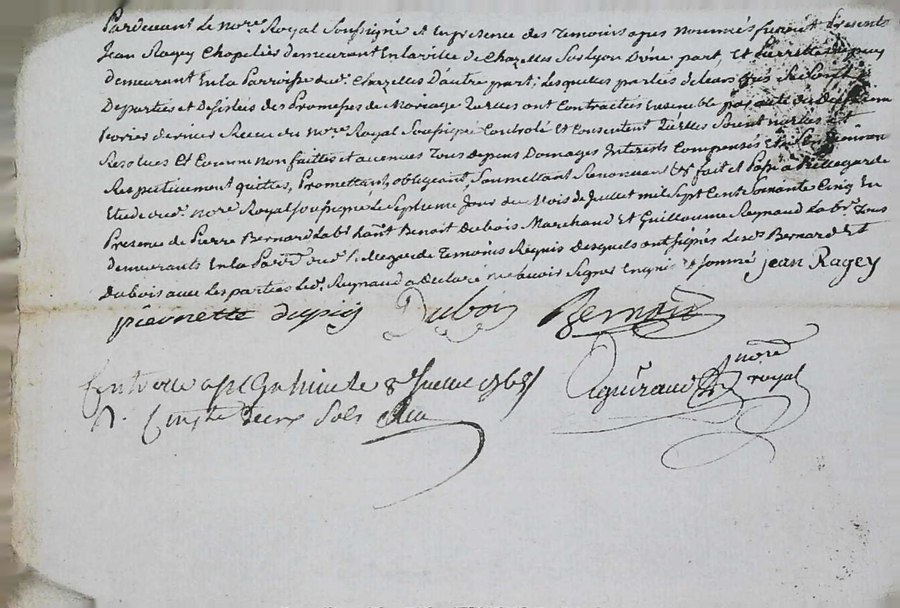 Pardevant Le no.re Royal Soussigné et En presence des Temoins apres Nommés furent présents
Jean Ragey Chapelier demeurant En la ville de Chazelles Sur Lyon D'une part, Et Pierrette Dupuy
demeurant En la Parroisse dud. Chazelles D'autre part; Lesquelles parties de leurs grés Se Sont
Departies et Desistées des Promesses de Mariage qu'elles ont Contractées Ensemble par acte du
fevrier dernier Receu du no.re Royal Soussigné Controlé Et Consentent qu'elles Soient nulles Et
Resolues Et Comme Non faittes et avenues Tous depens Domages Interests Compensés Et
Respectivement quittes, Promettant, obligeant, Soumettant Renonceant &.a fait et Passé a Bellegarde
Etude dud. no.re Royal Soussigné Le Septieme Jour du Mois de Juillet mil Sept Cent Soixante Cinq En
Presence de Pierre Bernard Lab.r Benoit Dubois Marchand Et Guillaume Reynaud Lab.r Tous
demeurants En la Parr.e dud. Bellegarde Temoins Requis Desquels ont signés Lesd. Bernard Et
Dubois avec Les parties Led. Reynaud a Declaré ne Savoir Signer Enquis & Sommé jean Ragey
pierrette dupuy Dubois Bernard
Controllé a St Galmier le 8e Juillet 1765
R. Sols no.re
royal